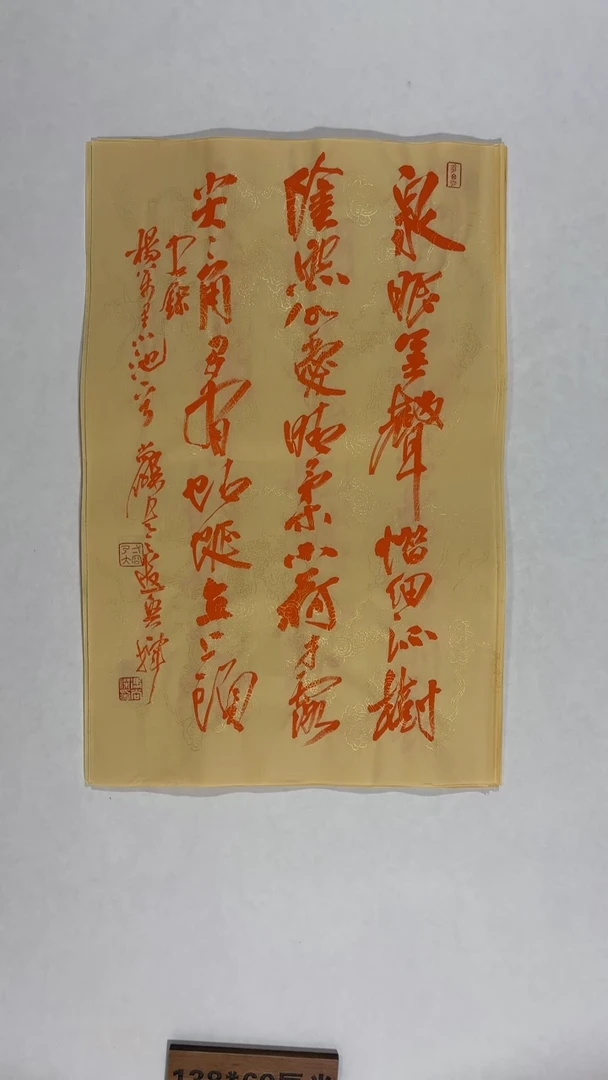 泉眼無聲惜細流樹
陰照水愛晴柔小荷才露
尖々角早有蜻蜓立上頭
楊萬里小池
138*69厘米